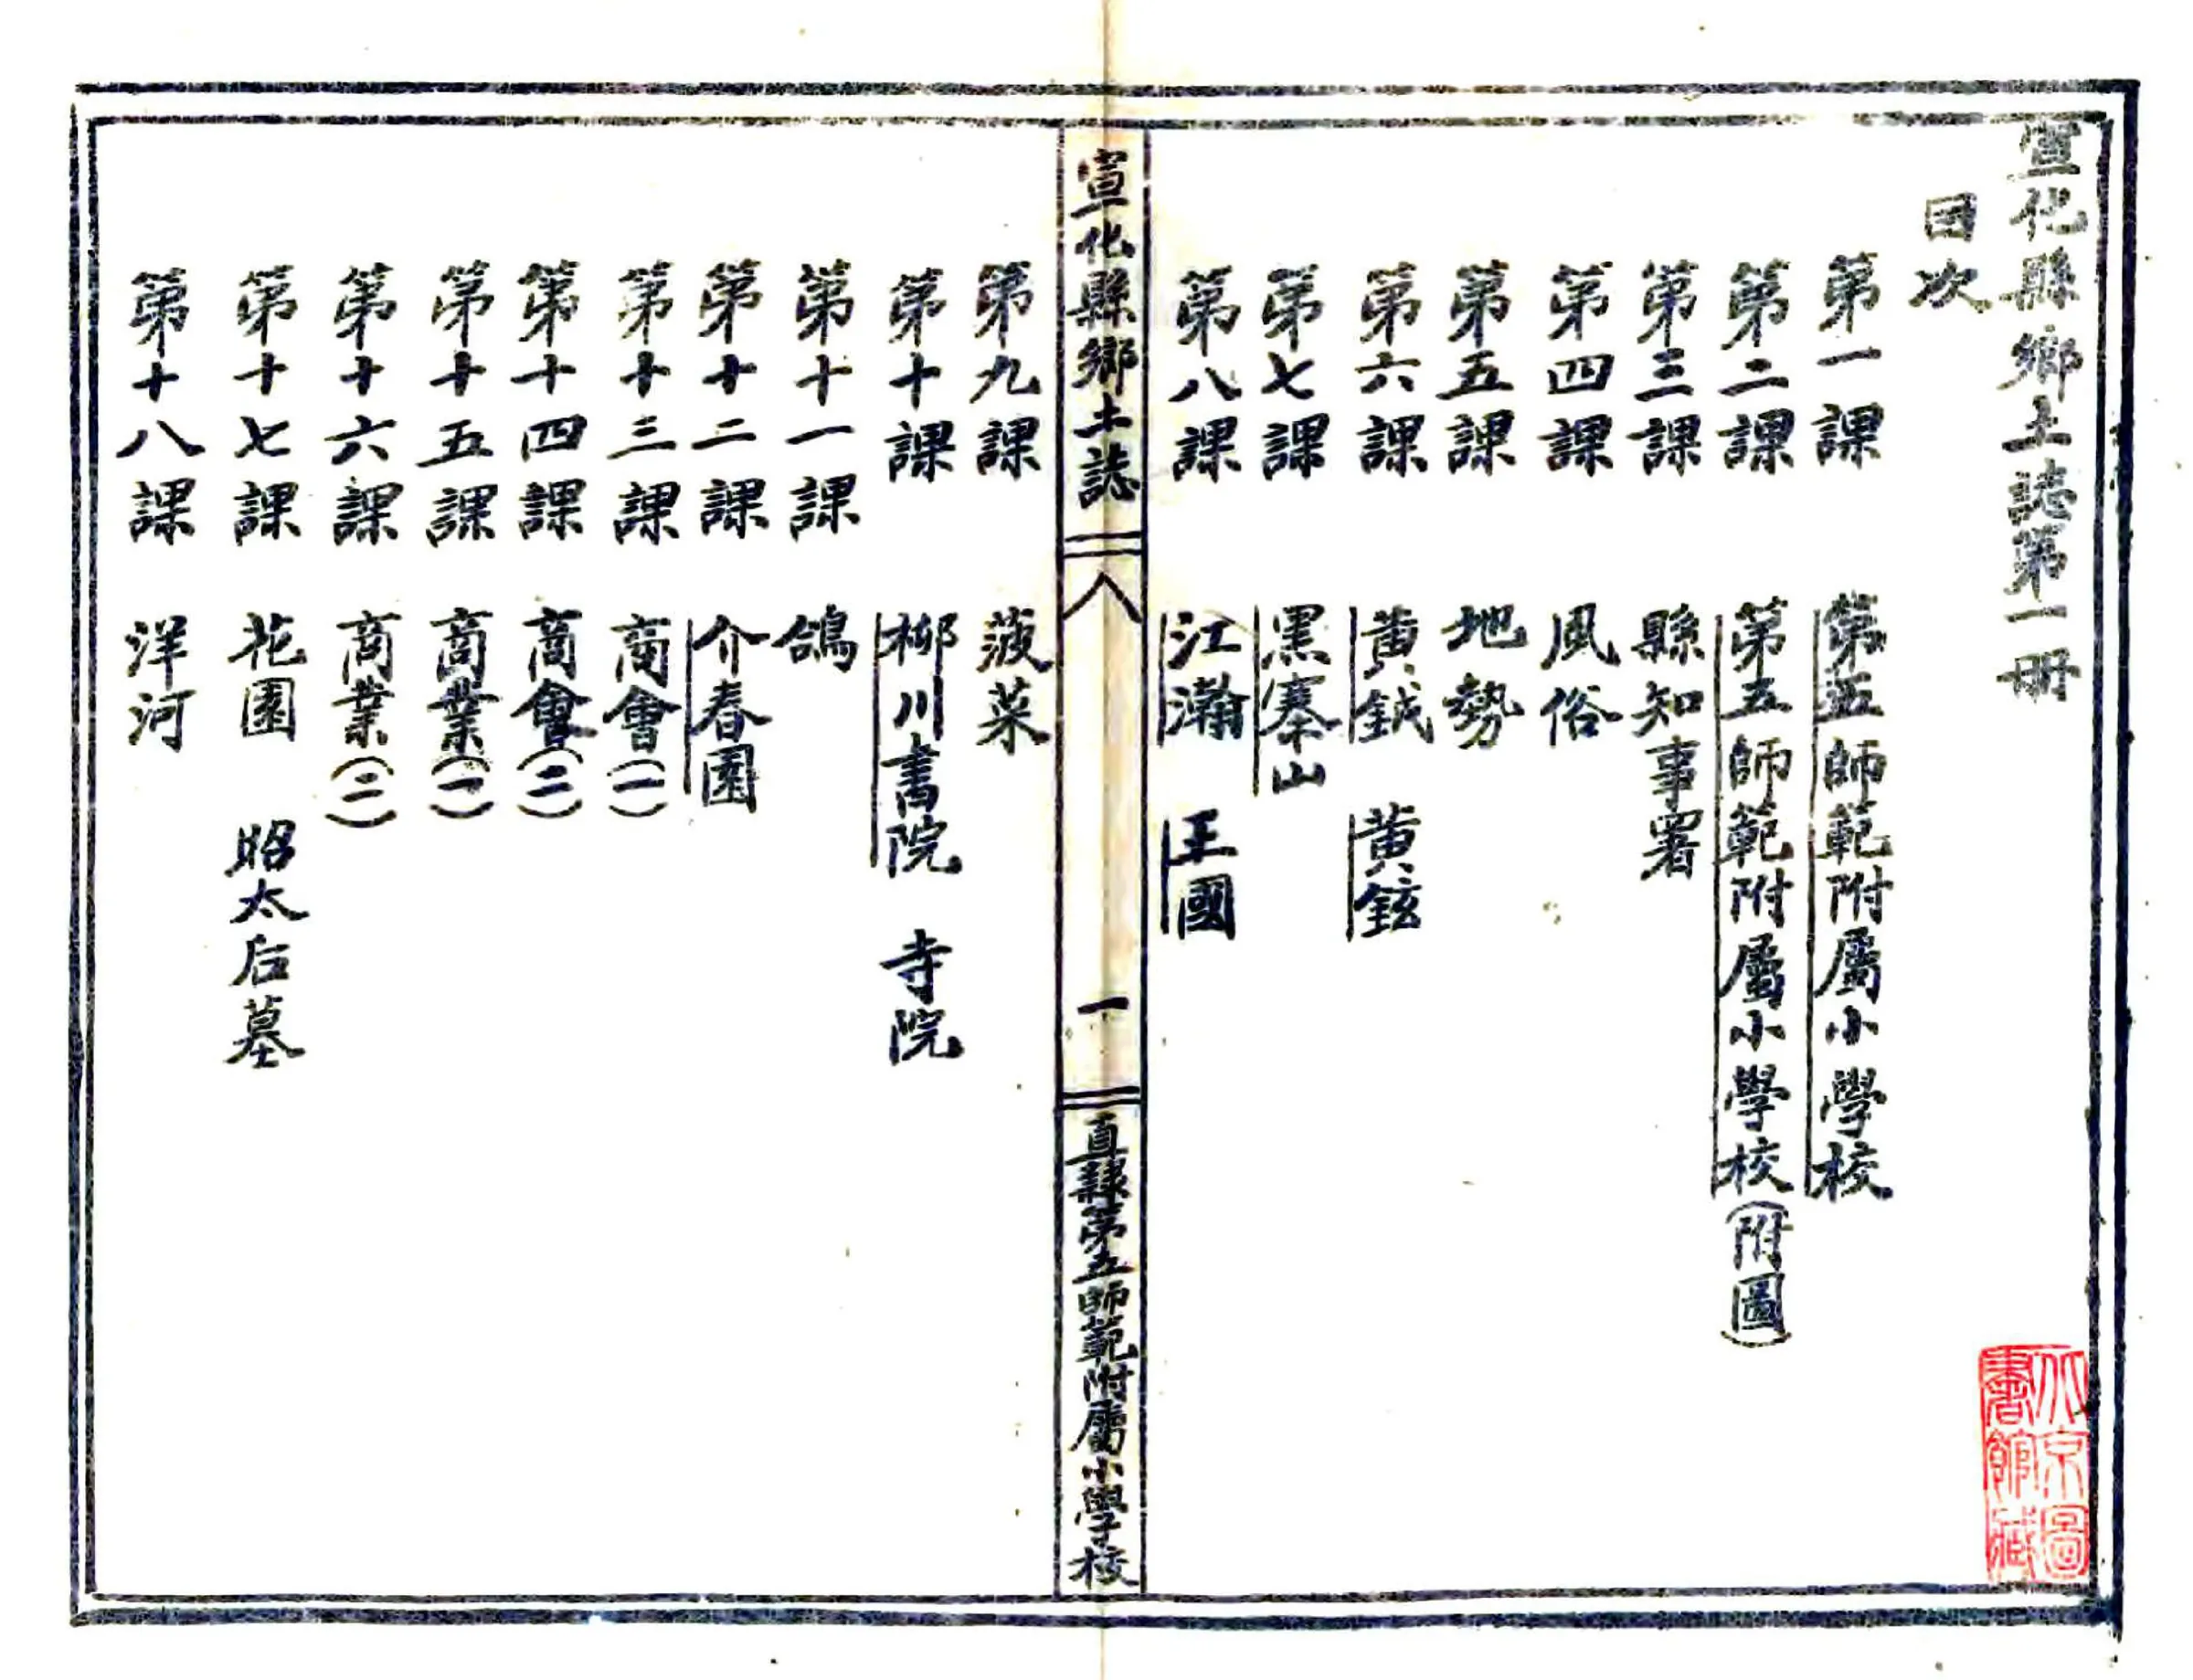 宣化縣鄉土誌第一冊
目次
第一課 第五師範附屬小學校
第二課 第五師範附屬小學校(附圖)
第三課 縣知事署
第四課 風俗
第五課 地勢
第六課 黄鉞 黄鉉
第七課 黑寨山
第八課 江瀚 王國
宣化縣鄉土誌
一
直隸第五師範附屬小學校
第九課 菠菜
第十課 柳川書院 寺院
第十一課 鴿
第十二課 介春園
第十三課 商會(一)
第十四課 商會(二)
第十五課 商業(一)
第十六課 商業(二)
第十七課 花園 昭太后墓
第十八課 洋河
北京圖
書館藏